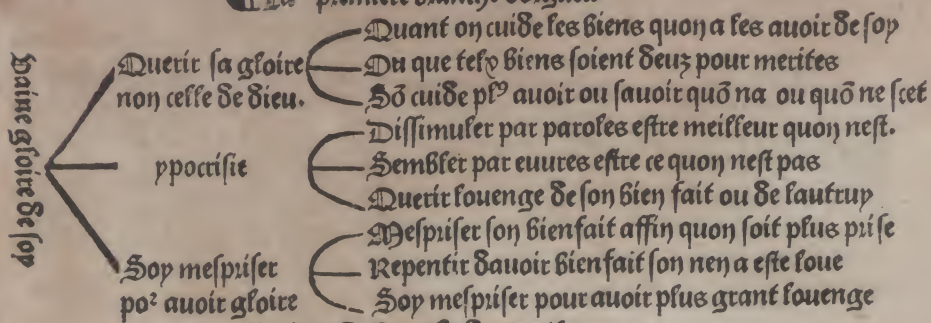 premiere branche dorgueil
Vaine gloire de soy
Querir sa gloire
non celle de dieu.
Quant on cuide les biens quon a les auoir de soy
Ou que telz biens soient deuz pour merites
Sō cuide plꝰ auoir ou sauoir quō na ou quō ne scet
ypocrisie
Dissimuler par paroles estre meilleur quon nest.
Sembler par euures estre ce quon nest pas
Querir louenge de son bien fait ou de lautruy
Soy mespriser
poꝛ auoir gloire
Mespriser son bienfait affin quon soit plus prise
Repentir dauoir bienfait son nen a este loue
Soy mespriser pour auoir plus grant louenge